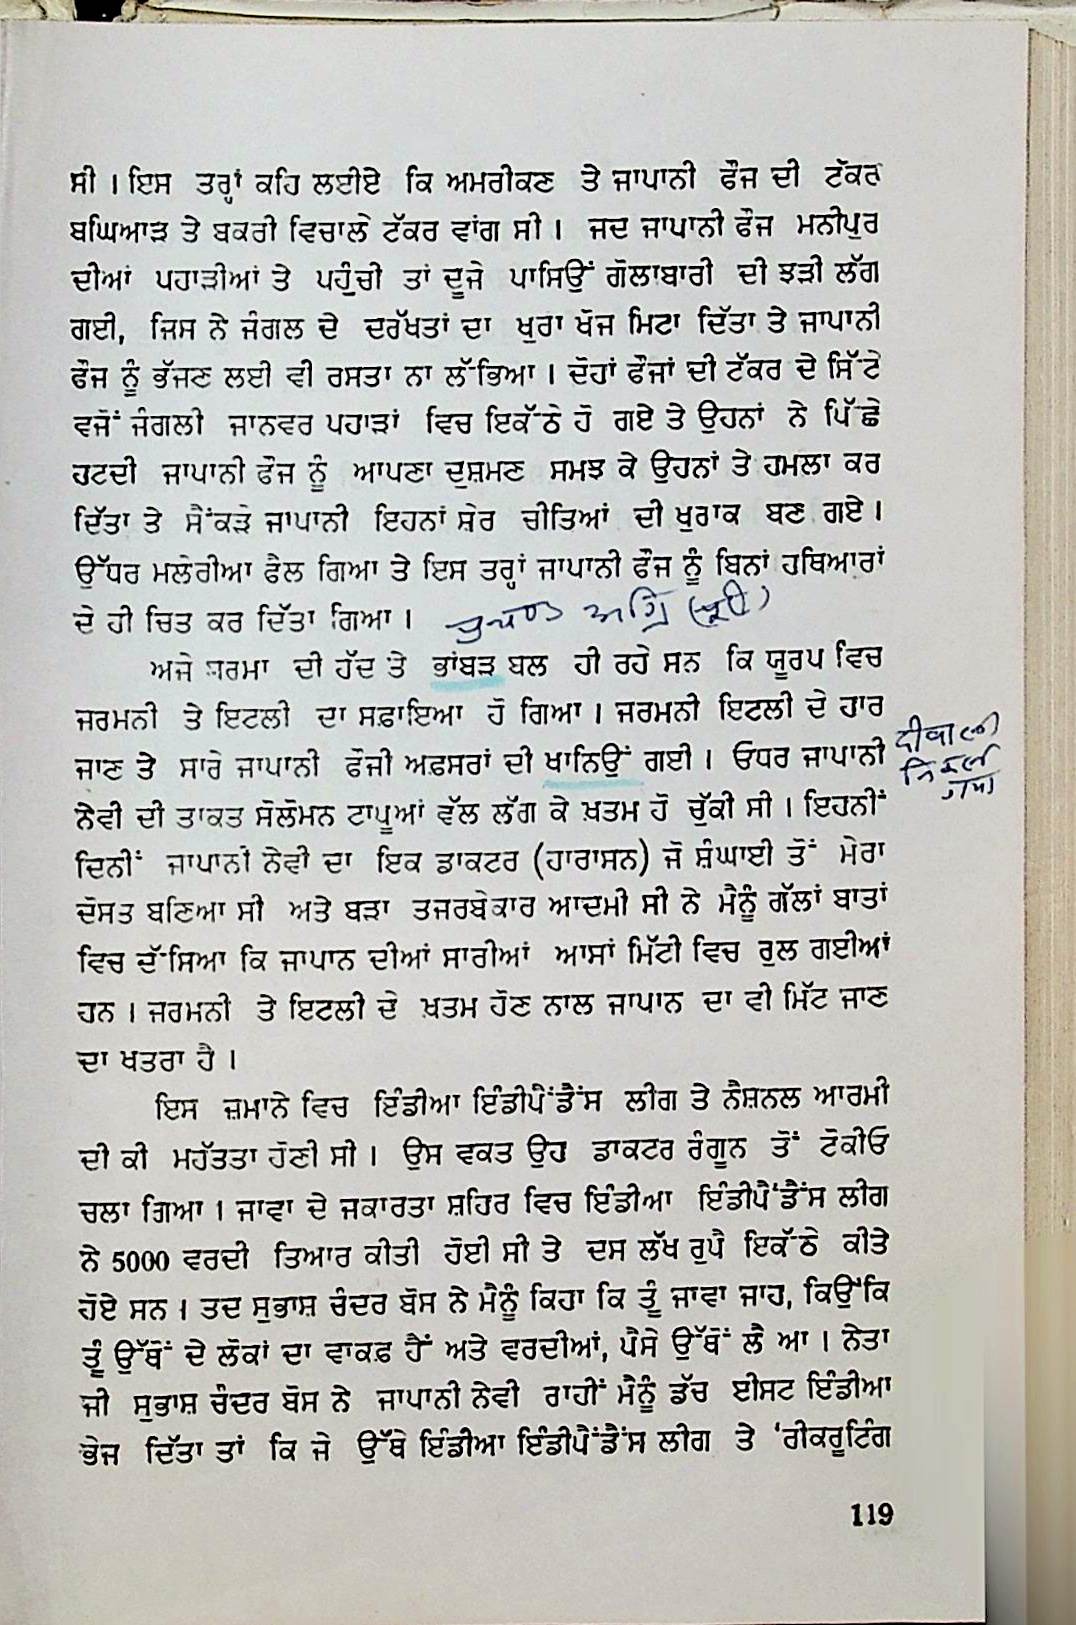 ਸੀ । ਇਸ ਤਰ੍ਹਾਂ ਕਹਿ ਲਈਏ ਕਿ ਅਮਰੀਕਣ ਤੇ ਜਾਪਾਨੀ ਫੌਜ ਦੀ ਟੱਕਰ
ਬਘਿਆੜ ਤੇ ਬਕਰੀ ਵਿਚਾਲੇ ਟੱਕਰ ਵਾਂਗ ਸੀ । ਜਦ ਜਾਪਾਨੀ ਫੌਜ ਮਨੀਪੁਰ
ਦੀਆਂ ਪਹਾੜੀਆਂ ਤੇ ਪਹੁੰਚੀ ਤਾਂ ਦੂਜੇ ਪਾਸਿਉਂ ਗੋਲਾਬਾਰੀ ਦੀ ਝੜੀ ਲੱਗ
ਗਈ, ਜਿਸ ਨੇ ਜੰਗਲ ਦੇ ਦਰੱਖਤਾਂ ਦਾ ਖੁਰਾ ਖੋਜ ਮਿਟਾ ਦਿੱਤਾ ਤੇ ਜਾਪਾਨੀ
ਫੌਜ ਨੂੰ ਭੱਜਣ ਲਈ ਵੀ ਰਸਤਾ ਨਾ ਲੱਭਿਆ । ਦੋਹਾਂ ਫੌਜਾਂ ਦੀ ਟੱਕਰ ਦੇ ਸਿੱਟੇ
ਵਜੋਂ ਜੰਗਲੀ ਜਾਨਵਰ ਪਹਾੜਾਂ ਵਿਚ ਇਕੱਠੇ ਹੋ ਗਏ ਤੇ ਉਹਨਾਂ ਨੇ ਪਿੱਛੇ
ਹਟਦੀ ਜਾਪਾਨੀ ਫੌਜ ਨੂੰ ਆਪਣਾ ਦੁਸ਼ਮਣ ਸਮਝ ਕੇ ਉਹਨਾਂ ਤੇ ਹਮਲਾ ਕਰ
ਦਿੱਤਾ ਤੇ ਸੈਂਕੜੇ ਜਾਪਾਨੀ ਇਹਨਾਂ ਸ਼ੇਰ ਚੀਤਿਆਂ ਦੀ ਖੁਰਾਕ ਬਣ ਗਏ ।
ਉੱਧਰ ਮਲੇਰੀਆ ਫੈਲ ਗਿਆ ਤੇ ਇਸ ਤਰ੍ਹਾਂ ਜਾਪਾਨੀ ਫੌਜ ਨੂੰ ਬਿਨਾਂ ਹਥਿਆਰਾਂ
ਦੇ ਹੀ ਚਿਤ ਕਰ ਦਿੱਤਾ ਗਿਆ ।
ਅਜੇ ਬਰਮਾ ਦੀ ਹੱਦ ਤੇ ਭਾਂਬੜ ਬਲ ਹੀ ਰਹੇ ਸਨ ਕਿ ਯੂਰਪ ਵਿਚ
ਜਰਮਨੀ ਤੇ ਇਟਲੀ ਦਾ ਸਫ਼ਾਇਆ ਹੋ ਗਿਆ । ਜਰਮਨੀ ਇਟਲੀ ਦੇ ਹਾਰ
ਜਾਣ ਤੇ ਸਾਰੇ ਜਾਪਾਨੀ ਫੌਜੀ ਅਫ਼ਸਰਾਂ ਦੀ ਖਾਨਿਉਂ ਗਈ । ਓਧਰ ਜਾਪਾਨੀ
ਨੇਵੀ ਦੀ ਤਾਕਤ ਸੋਲੋਮਨ ਟਾਪੂਆਂ ਵੱਲ ਲੱਗ ਕੇ ਖ਼ਤਮ ਹੋ ਚੁੱਕੀ ਸੀ । ਇਹਨੀਂ
ਦਿਨੀਂ ਜਾਪਾਨੀ ਨੇਵੀ ਦਾ ਇਕ ਡਾਕਟਰ (ਹਾਰਾਸਨ) ਜੋ ਸ਼ੰਘਾਈ ਤੋਂ ਮੇਰਾ
ਦੋਸਤ ਬਣਿਆ ਸੀ ਅਤੇ ਬੜਾ ਤਜਰਬੇਕਾਰ ਆਦਮੀ ਸੀ ਨੇ ਮੈਨੂੰ ਗੱਲਾਂ ਬਾਤਾਂ
ਵਿਚ ਦੱਸਿਆ ਕਿ ਜਾਪਾਨ ਦੀਆਂ ਸਾਰੀਆਂ ਆਸਾਂ ਮਿੱਟੀ ਵਿਚ ਰੁਲ ਗਈਆਂ
ਹਨ । ਜਰਮਨੀ ਤੇ ਇਟਲੀ ਦੇ ਖ਼ਤਮ ਹੋਣ ਨਾਲ ਜਾਪਾਨ ਦਾ ਵੀ ਮਿੱਟ ਜਾਣ
ਦਾ ਖਤਰਾ ਹੈ ।
ਇਸ ਜ਼ਮਾਨੇ ਵਿਚ ਇੰਡੀਆ ਇੰਡੀਪੈਂਡੈਂਸ ਲੀਗ ਤੇ ਨੈਸ਼ਨਲ ਆਰਮੀ
ਦੀ ਕੀ ਮਹੱਤਤਾ ਹੋਣੀ ਸੀ । ਉਸ ਵਕਤ ਉਹ ਡਾਕਟਰ ਰੰਗੂਨ ਤੋਂ ਟੋਕੀਓ
ਚਲਾ ਗਿਆ । ਜਾਵਾ ਦੇ ਜਕਾਰਤਾ ਸ਼ਹਿਰ ਵਿਚ ਇੰਡੀਆ ਇੰਡੀਪੈਂਡੈਂਸ ਲੀਗ
ਨੇ 5000 ਵਰਦੀ ਤਿਆਰ ਕੀਤੀ ਹੋਈ ਸੀ ਤੇ ਦਸ ਲੱਖ ਰੁਪੈ ਇਕੱਠੇ ਕੀਤੇ
ਹੋਏ ਸਨ । ਤਦ ਸੁਭਾਸ਼ ਚੰਦਰ ਬੋਸ ਨੇ ਮੈਨੂੰ ਕਿਹਾ ਕਿ ਤੂੰ ਜਾਵਾ ਜਾਹ, ਕਿਉਂਕਿ
ਤੂੰ ਉੱਥੋਂ ਦੇ ਲੋਕਾਂ ਦਾ ਵਾਕਫ਼ ਹੈਂ ਅਤੇ ਵਰਦੀਆਂ, ਪੈਸੇ ਉੱਥੋਂ ਲੈ ਆ । ਨੇਤਾ
ਜੀ ਸੁਭਾਸ਼ ਚੰਦਰ ਬੋਸ ਨੇ ਜਾਪਾਨੀ ਨੇਵੀ ਰਾਹੀਂ ਮੈਨੂੰ ਡੱਚ ਈਸਟ ਇੰਡੀਆ
ਭੇਜ ਦਿੱਤਾ ਤਾਂ ਕਿ ਜੇ ਉੱਥੇ ਇੰਡੀਆ ਇੰਡੀਪੈਂਡੈਂਸ ਲੀਗ ਤੇ ‘ਰੀਕਰੂਟਿੰਗ
119